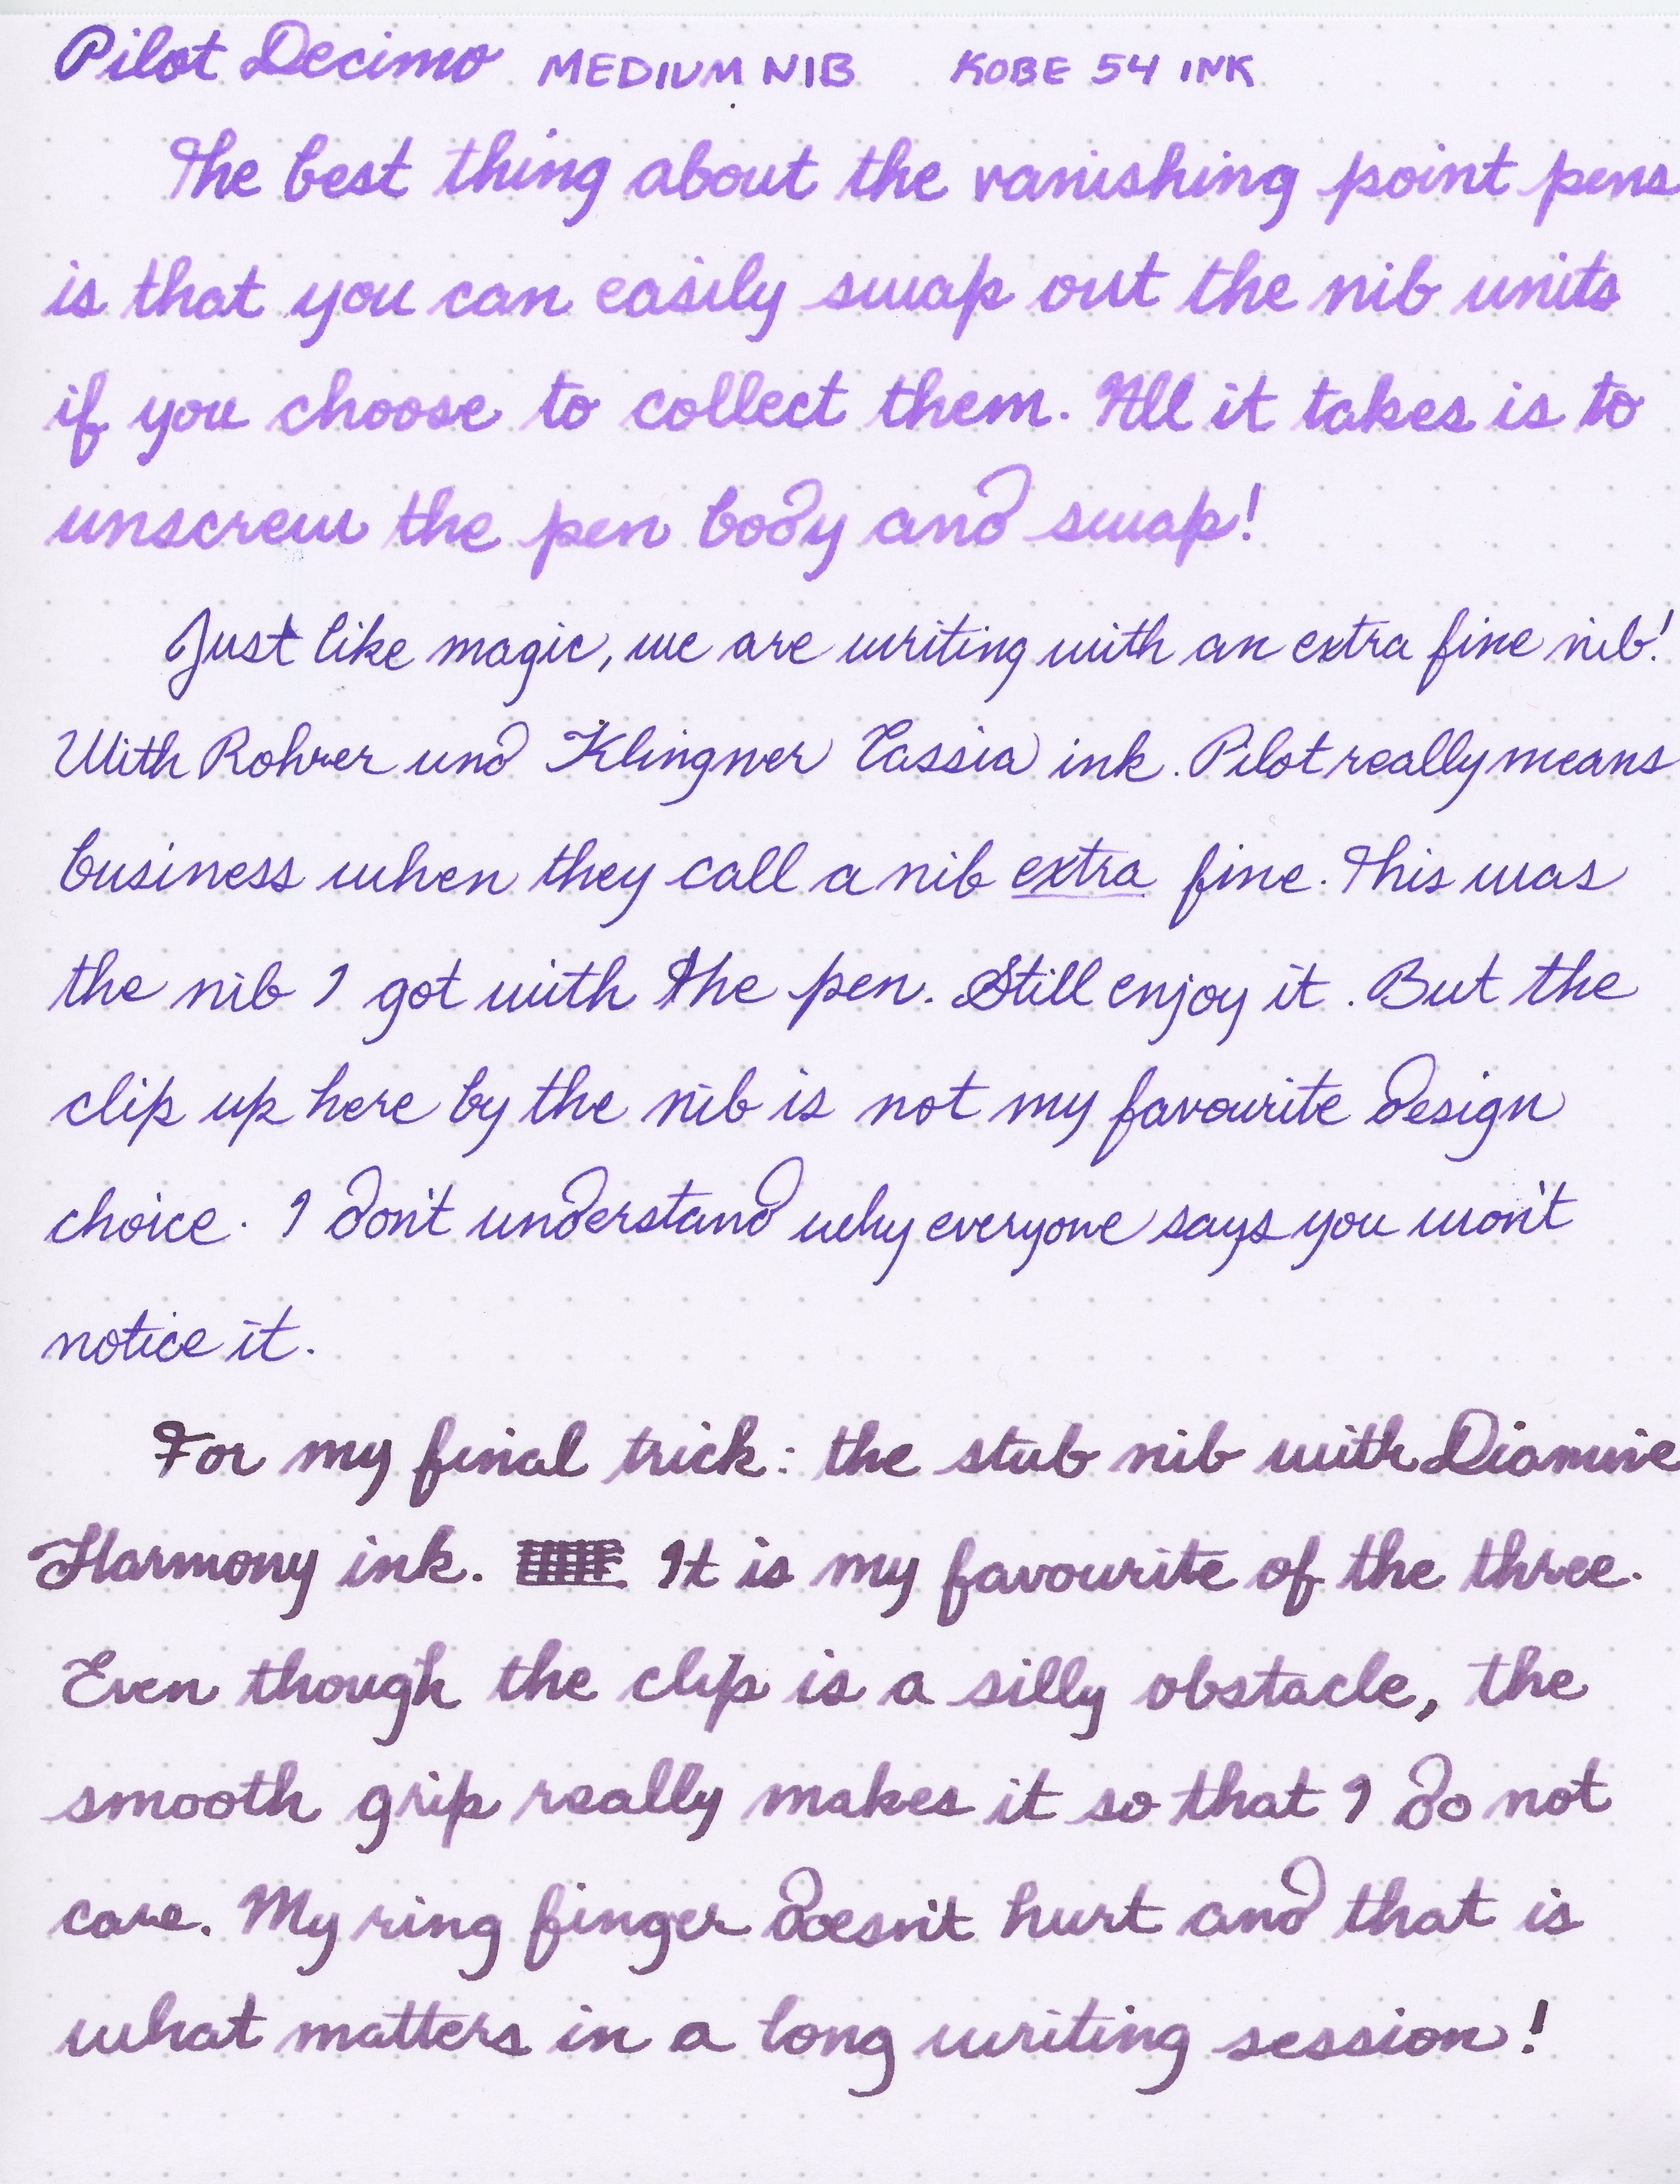 Pilot Decimo MEDIUM NIB KOBE 54 INK
The best thing about the vanishing point pens
is that you can easily swap out the nib units
if you choose to collect them. All it takes is to
unscrew the pen body and swap!
Just like magic, we are writing with an extra fine nib!
With Rohrer und Klingner Cassia ink. Pilot really means
business when they call a nib extra fine. This was
the nib I got with the pen. Still enjoy it. But the
clip up here by the nib is not my favourite design
choice. I don't understand why everyone says you won't
notice it.
For my final trick: the stub nib with Diamine
Harmony ink. It is my favourite of the three.
Even though the clip is a silly obstacle, the
smooth grip really makes it so that I do not
care. My ring finger doesn't hurt and that is
what matters in a long writing session!